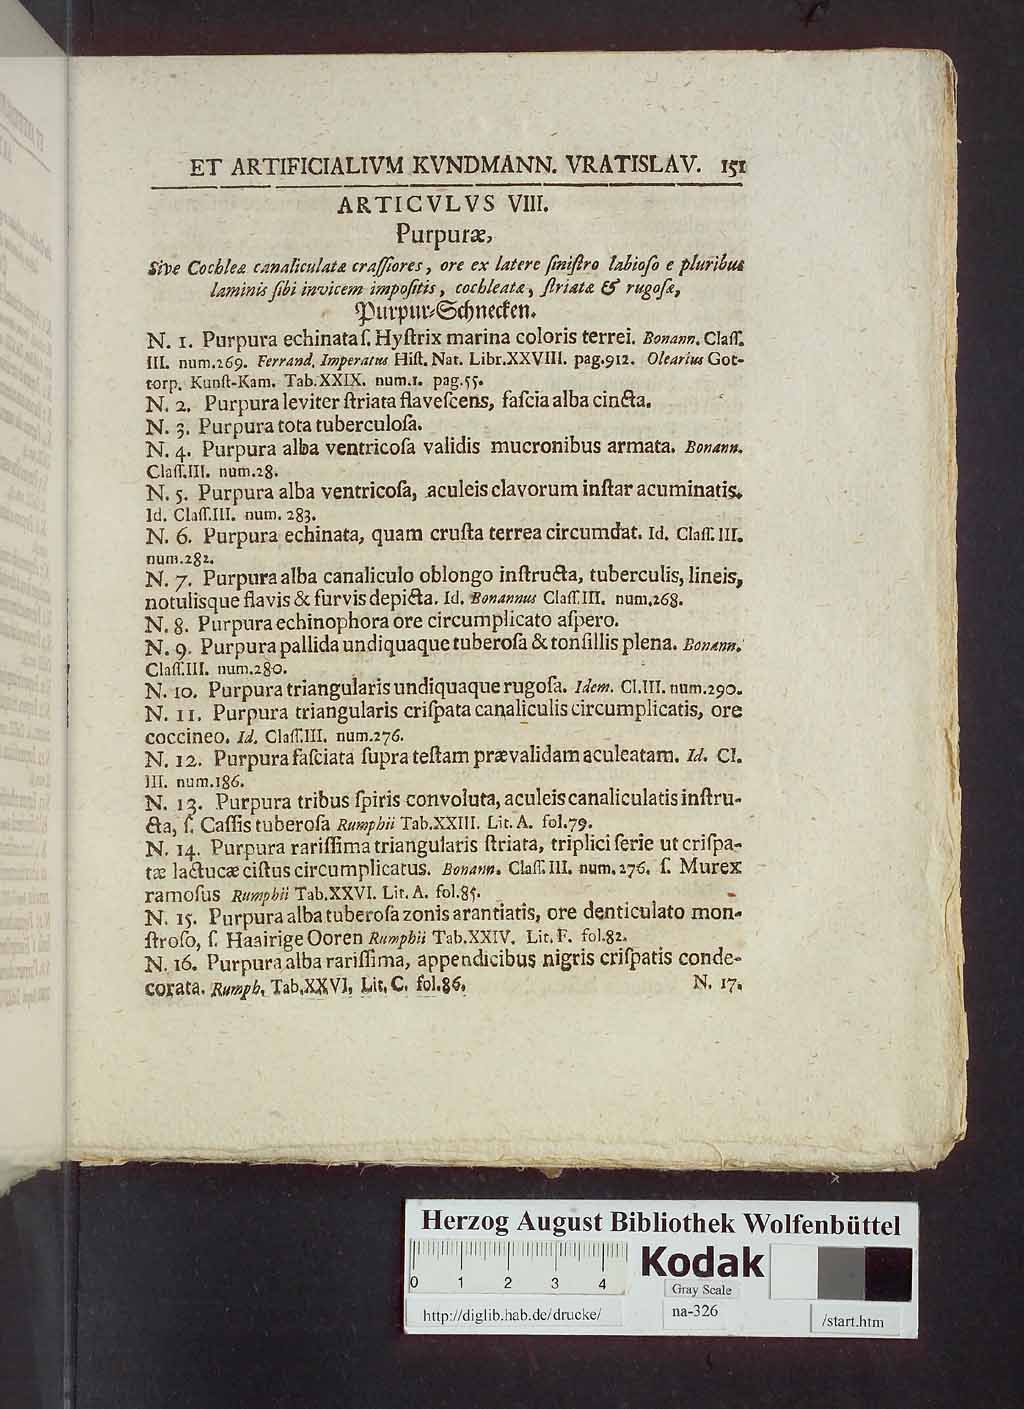 ET ARTIFICIALIVM KVNDMANN. VRATISLAV. 151
ARTICVLVS VIII.
Purpuræ,
Sive Cochleæ canaliculatæ craſſiores, ore ex latere ſiniſtro labioſo e pluribus
laminis ſibi invicem impoſitis, cochleatæ, ſtriatæ & rugoſæ,
Purpur-Schnecken.
N. 1. Purpura echinata ſ. Hyſtrix marina coloris terrei. Bonann. Claſſ.
III. num. 269. Ferrand. Imperatus Hiſt. Nat. Libr. XXVIII. pag. 912. Olearius Got-
torp. Kunſt-Kam. Tab. XXIX. num. 1. pag. 55.
N. 2. Purpura leviter ſtriata flaveſcens, faſcia alba cincta.
N. 3. Purpura tota tuberculoſa.
N. 4. Purpura alba ventricoſa validis mucronibus armata. Bonann.
Claſſ. III. num. 28.
N. 5. Purpura alba ventricoſa, aculeis clavorum inſtar acuminatis.
Id. Claſſ. III. num. 283.
N. 6. Purpura echinata, quam cruſta terrea circumdat. Id. Claſſ. III.
num. 282.
N. 7. Purpura alba canaliculo oblongo inſtructa, tuberculis, lineis,
notulisque flavis & furvis depicta. Id. Bonannus Claſſ. III. num. 268.
N. 8. Purpura echinophora ore circumplicato aſpero.
N. 9. Purpura pallida undiquaque tuberoſa & tonſillis plena. Bonann.
Claſſ. III. num. 280.
N. 10. Purpura triangularis undiquaque rugoſa. Idem. Cl. III. num. 290.
N. 11. Purpura triangularis criſpata canaliculis circumplicatis, ore
coccineo. Id. Claſſ. III. num. 276.
N. 12. Purpura faſciata ſupra teſtam prævalidam aculeatam. Id. Cl.
III. num. 186.
N. 13. Purpura tribus ſpiris convoluta, aculeis canaliculatis inſtru-
cta, ſ. Caſſis tuberoſa Rumphii Tab. XXIII. Lit. A. fol. 79.
N. 14. Purpura rariſſima triangularis ſtriata, triplici ſerie ut criſpa-
tæ lactucæ ciſtus circumplicatus. Bonann. Claſſ. III. num. 276. ſ. Murex
ramoſus Rumphii Tab. XXVI. Lit. A. fol. 85.
N. 15. Purpura alba tuberoſa zonis arantiatis, ore denticulato mon-
ſtroſo, ſ. Haairige Ooren Rumphii Tab. XXIV. Lit. F. fol. 82.
N. 16. Purpura alba rariſſima, appendicibus nigris criſpatis conde-
corata. Rumph. Tab. XXVI. Lit. C. fol. 86.
N. 17.
Herzog August Bibliothek Wolfenbüttel
0 1 2 3 4
Kodak
Gray Scale
http://diglib.hab.de/drucke/
na-326
/start.htm